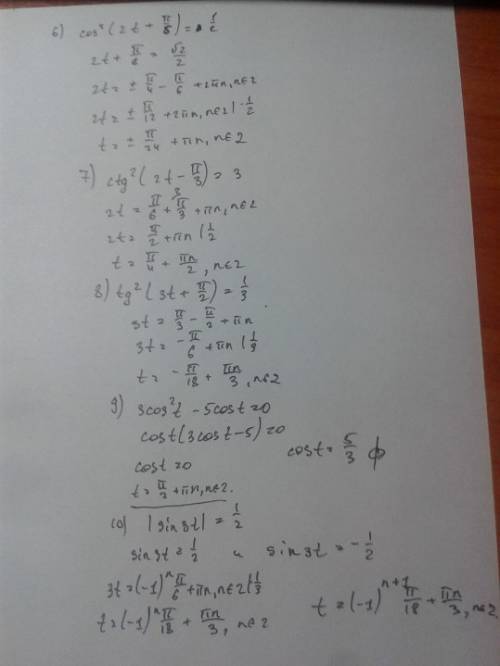 6) cos²(2t + π/8) = 1/2
2t + π/6 = √2/2
2t = ± π/4 - π/6 + 2πn, n∈Z
2t = ± π/12 + 2πn, n∈Z | · 1/2
t = ± π/24 + πn, n∈Z
7) ctg²(2t - π/3) = 3
2t = π/6 + π/3 + πn, n∈Z
2t = π/2 + πn | 1/2
t = π/4 + πn/2, n∈Z
8) tg²(3t + π/2) = 1/3
3t = π/3 - π/2 + πn
3t = - π/6 + πn | 1/3
t = - π/18 + πn/3, n∈Z
9) 3cos²t - 5cost = 0
cost(3cost - 5) = 0
cost = 0 cost = 5/3 ϕ
t = π/2 + πn, n∈Z.
10) |sin3t| = 1/2
sin3t = 1/2 и sin3t = - 1/2
3t = (-1)ⁿ π/6 + πn, n∈Z | 1/3
t = (-1)ⁿ π/18 + πn/3, n∈Z t = (-1)ⁿ⁺¹ π/18 + πn/3, n∈Z